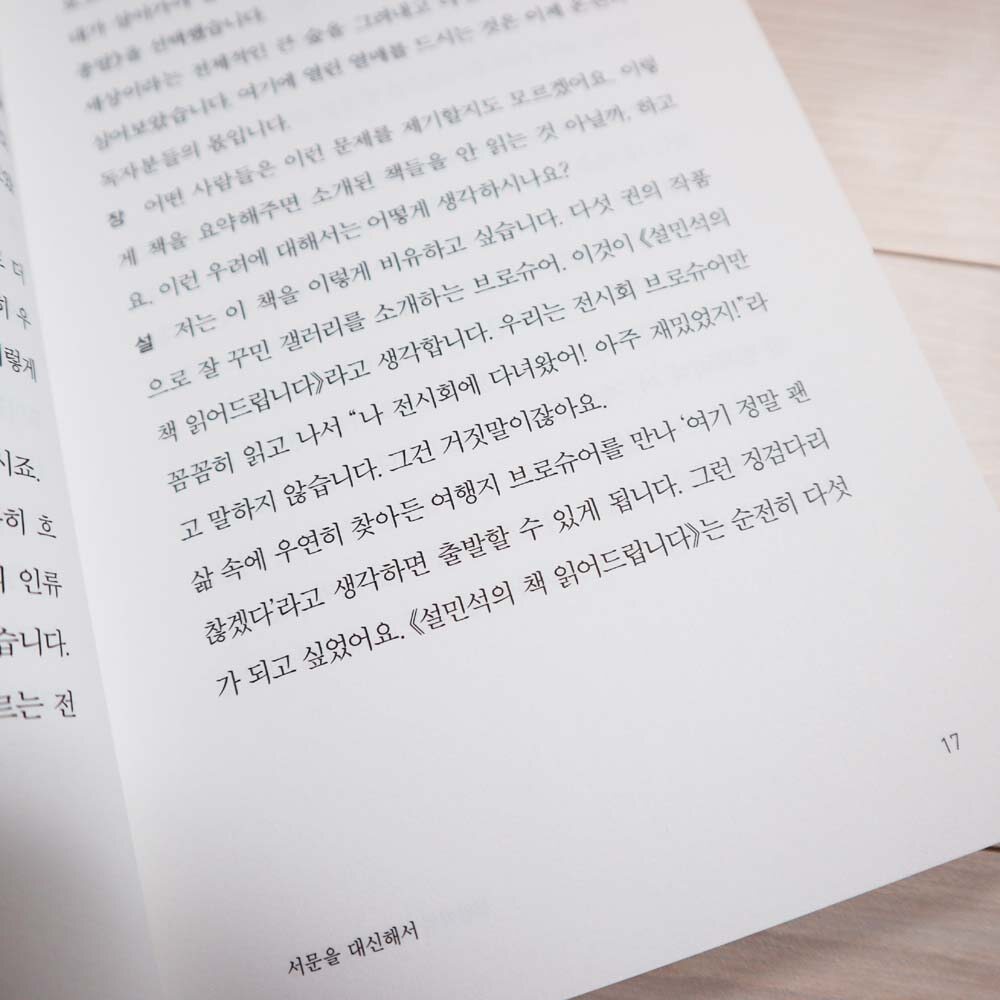 다
히 우
이렇게
시죠.
히 흐
인류
습니다.
르는 전
내가 살아가야
을 선택했습니다.
세상이라는 전체적인 큰 숲을 그려내고
심어보았습니다. 여기에 열린 열매를 드시는 것은 이제
독자분들의 몫입니다.
장 어떤 사람들은 이런 문제를 제기할지도 모르겠어요. 이렇
게 책을 요약해주면 소개된 책들을 안 읽는 것 아닐까, 하고
요. 이런 우려에 대해서는 어떻게 생각하시나요?
설 저는 이 책을 이렇게 비유하고 싶습니다. 다섯 권의 작품
으로 잘 꾸민 갤러리를 소개하는 브로슈어. 이것이 《설민석의
책 읽어드립니다》라고 생각합니다. 우리는 전시회 브로슈어만
꼼꼼히 읽고 나서 “나 전시회에 다녀왔어! 아주 재밌었지!”라
고 말하지 않습니다. 그건 거짓말이잖아요.
삶 속에 우연히 찾아든 여행지 브로슈어를 만나 ‘여기 정말 괜
찮겠다’라고 생각하면 출발할 수 있게 됩니다. 그런 징검다리
가 되고 싶었어요. 《설민석의 책 읽어드립니다》는 순전히 다섯
17
서문을 대신해서